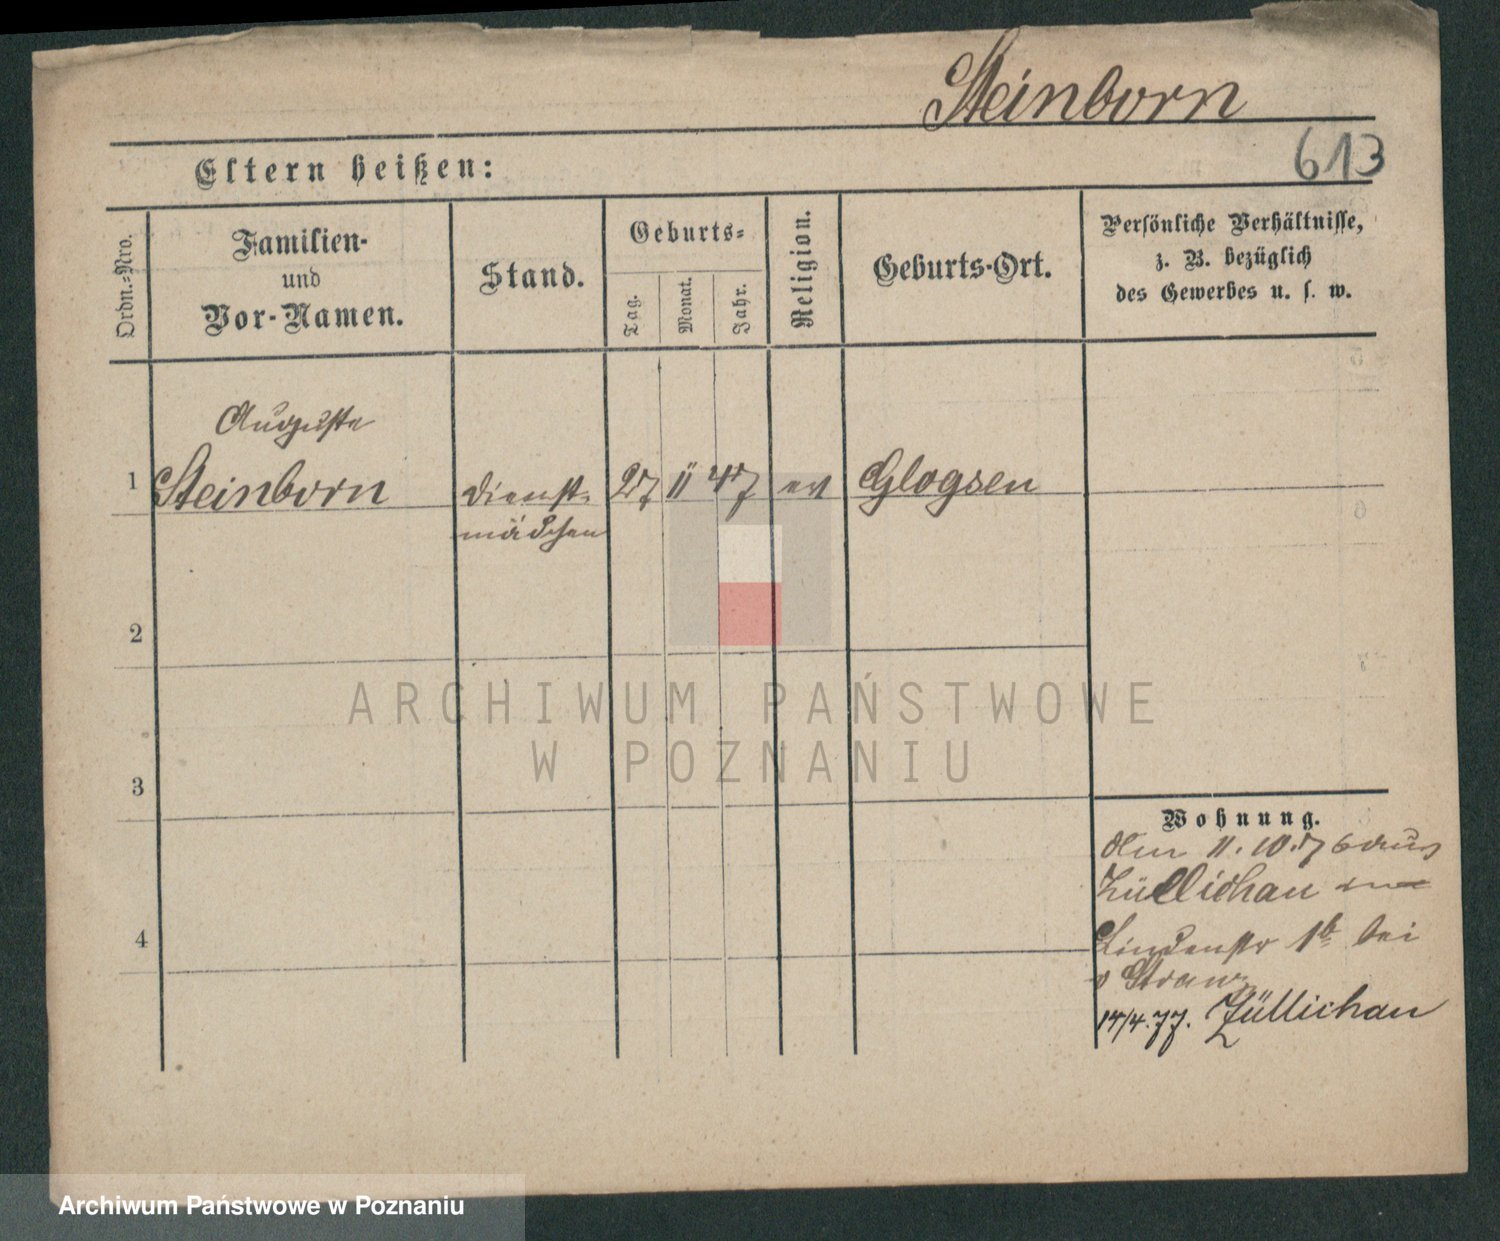 Steinborn
613
Eltern heißen:
Ordn.-Nro.
Familien-
und
Vor-Namen.
Stand.
Geburts-
Tag.
Monat.
Jahr.
Religion.
Geburts-Ort.
Persönliche Verhältnisse,
z. B. bezüglich
des Gewerbes u. s. w.
Auguste
1 Steinborn Dienst- 27 11 47 ev Glogsen
mädchen
2
3
4
Wohnung.
Am 11.10.76 aus
Züllichau
Lindenstr 1b bei
v
14/4.77. Züllichau
ARCHIWUM PAŃSTWOWE
W POZNANIU
Archiwum Państwowe w Poznaniu